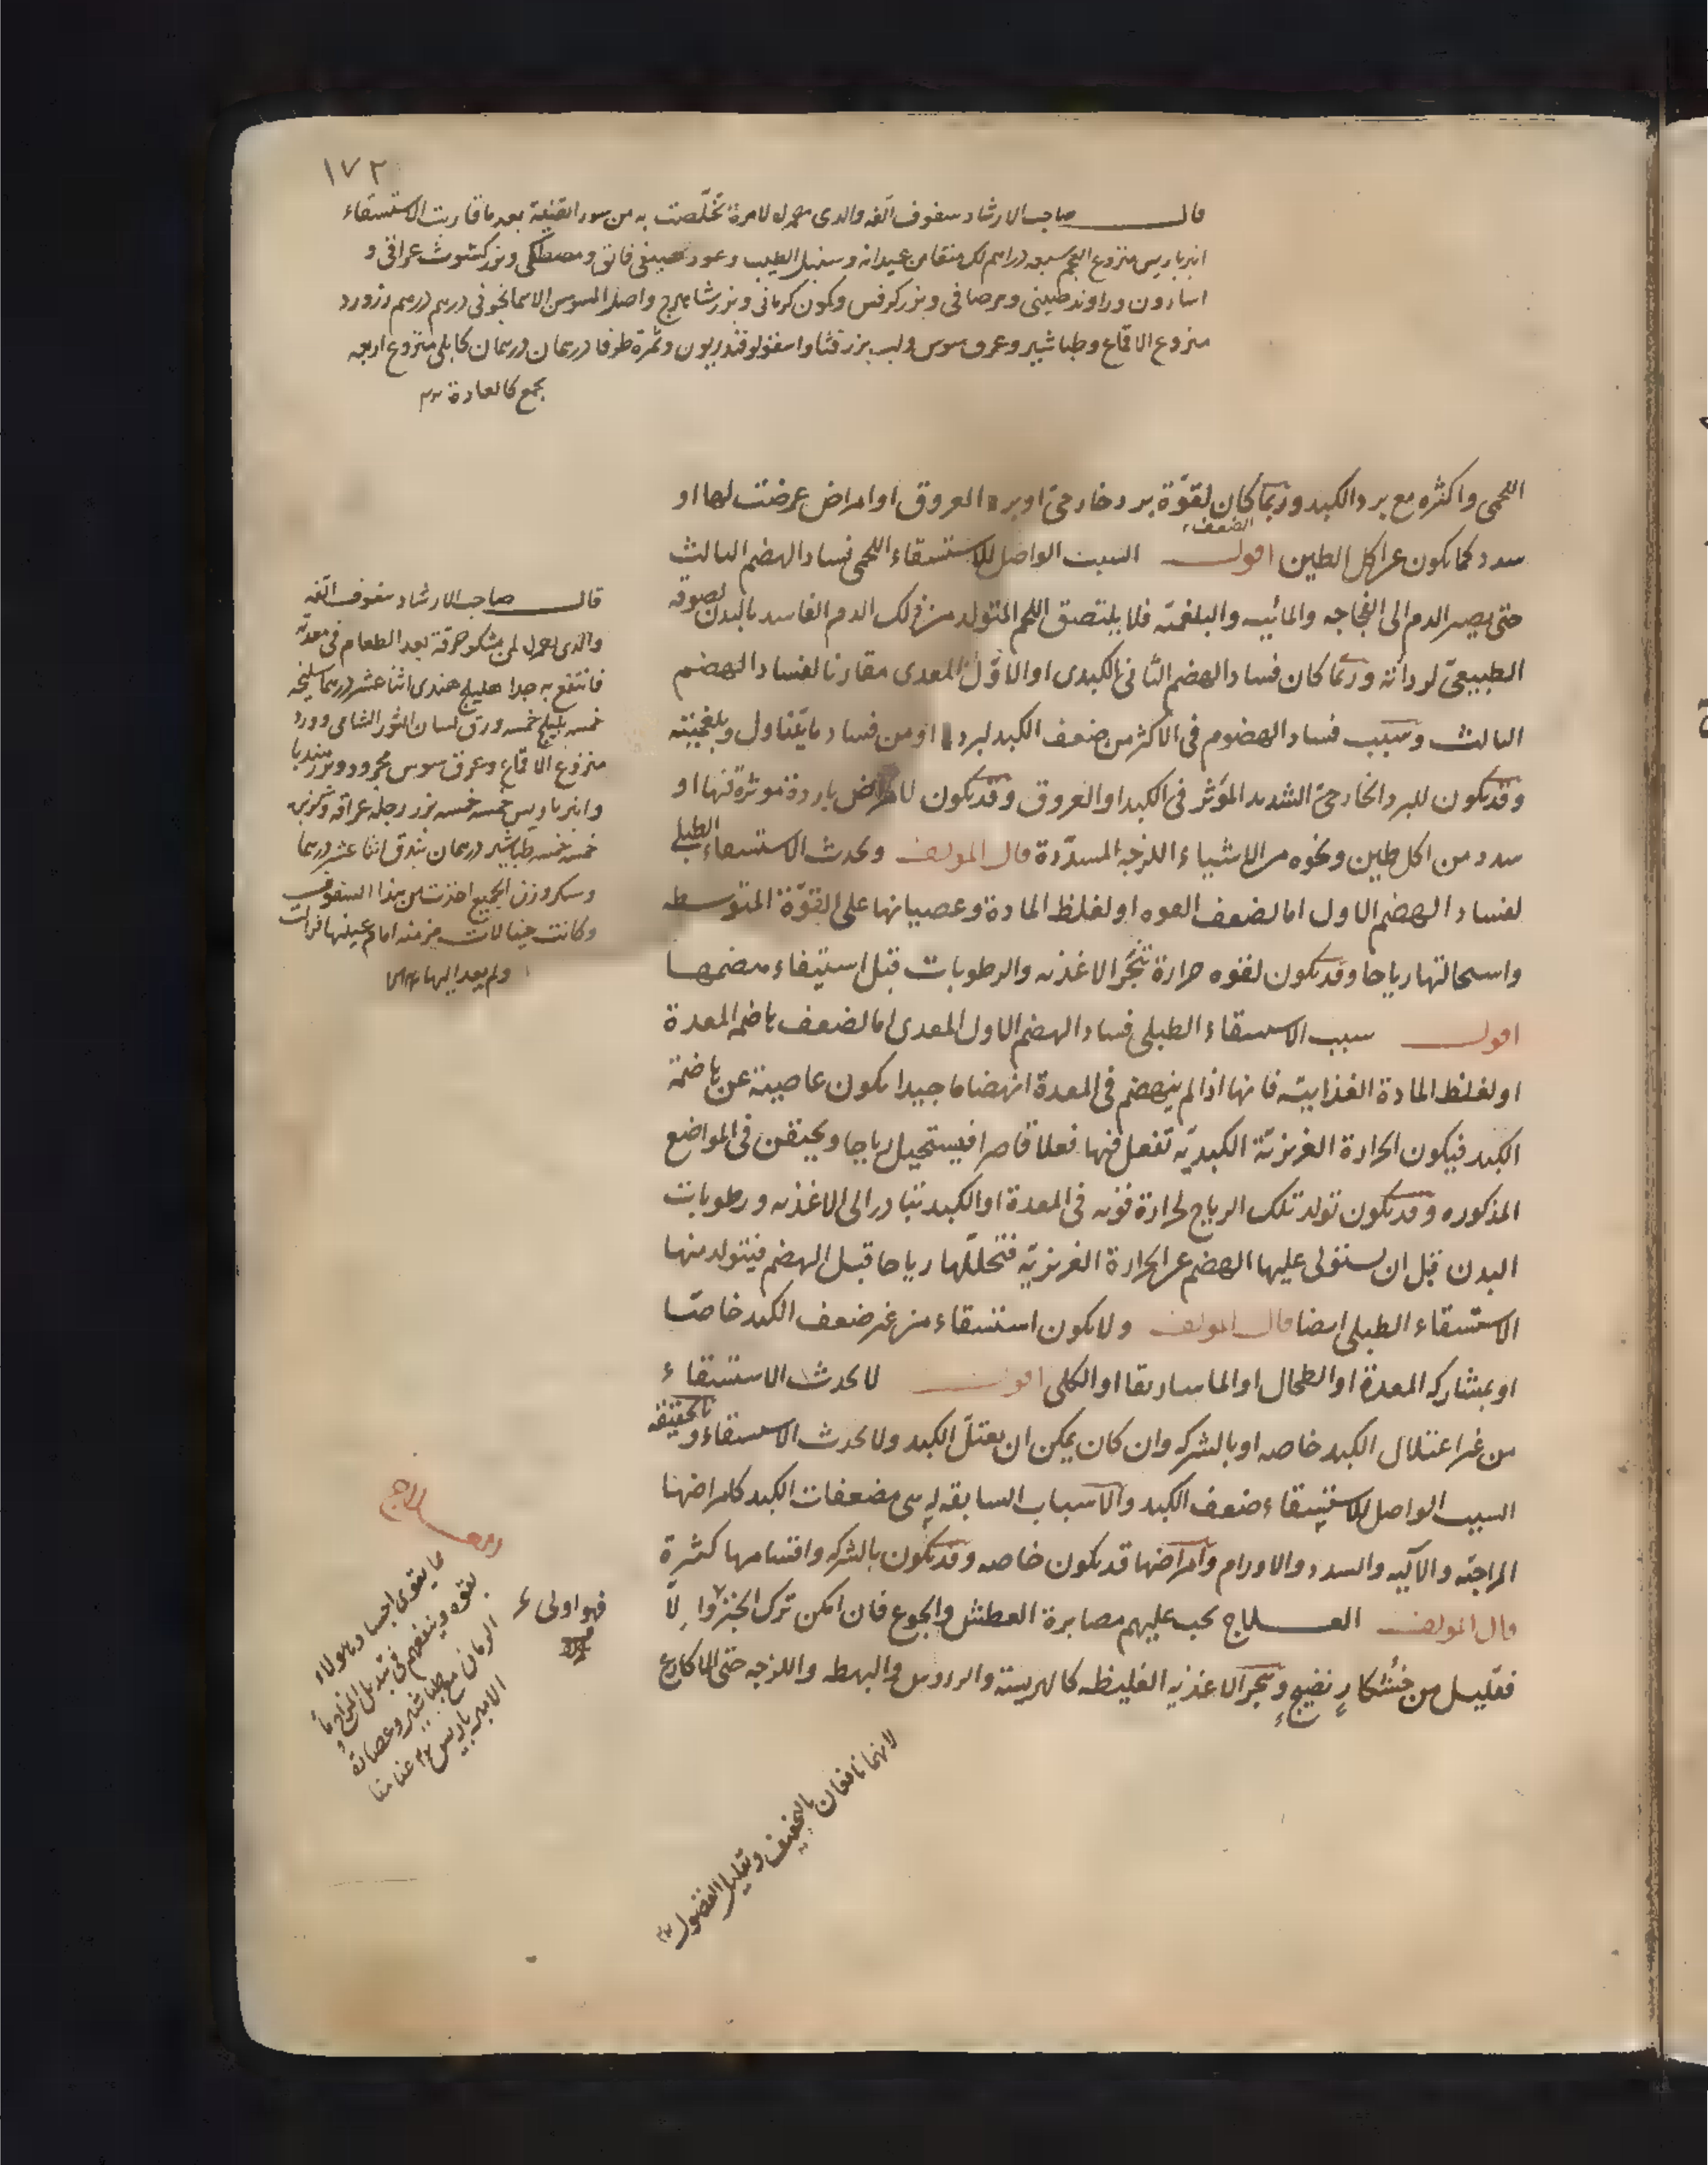 ١٧٢
قال صاحب الارشاد سفوف الّفه والدى لامرة تخلّصت به من سوء القنية بعد ما قاربت الاستسقاء
انبرباريس منزوع العجم سبعه دراهم لك منقا من عيدانه وسنبل الطيب وعود صينى فائق ومصطكى وبزر كشوث عراقى و
اسارون وراوند صينى وبزر كرفس وكمون كرمانى وبزر شاهترج واصل السوسن الاسمانجونى درهم درهم وزورد
منزوع الاقماع وطباشير وعرق سوس ولب بزر قثا واسقولوقندريون وثمرة طرفا درهمان درهمان كابلى منزوع اربعه
يجمع كالعادة
اللحمى واكثره مع برد الكبد وربّما كان لقوّة برد خارجىّ او برد العروق او امراض عرضت لها او
الضعف
سدد كما يكون عن اكل الطين اقول السبب الواصل للاستسقاء اللحمى فساد الهضم الثالث
حتى يصير الدم الى الفجاجه والمائيه والبلغميّه فلا يلتصق اللحم المتولد من ذلك الدم الفاسد بالبدن لصوقه
الطبيعىّ لرداته وربّما كان فساد الهضم الثانى الكبدى او الاوّل المعدى مقارنا لفساد الهضم
الثالث وسبب فساد الهضوم فى الاكثر من ضعف الكبد لبرد او من فساد ما يتناول وبلغميّته
وقد يكون للبرد الخارجىّ الشديد المؤثر فى الكبد او العروق وقد يكون لامراض باردة موثرة فيها او
سدد من اكل طين ونحوه من الاشياء اللزجه المسدّدة قال المولف ويحدث الاستسقاء الطبلى
لفساد الهضم الاول اما لضعف القوه او لغلظ المادة وعصيانها على القوّة المتوسطه
واستحالتها رياحا وقد يكون لقوه حرارة تبخّر الاغذيه والرطوبات قبل استيفاء هضمها
اقول سبب الاستسقاء الطبلى فساد الهضم الاول المعدى اما لضعف هاضمه المعدة
او لغلظ المادة الغذائيه فانها اذا لم ينهضم فى المعدة انهضاما جيدا يكون عاصية عن هاضمة
الكبد فيكون الحرارة الغريزيّة الكبديّه تفعل فيها فعلا قاصرا فيستحيل رياحا ويحتقن فى المواضع
المذكوره وقد يكون تولد تلك الرياح لحرارة قويه فى المعدة او الكبد تتبادر الى الاغذيه ورطوبات
البدن قبل ان يستولى عليها الهضم عن الحرارة الغريزيّه فتحلّلها رياحا قبل الهضم فيتولد منها
الاستسقاء الطبلى ايضا قال المولف ولا يكون استسقاء من غير ضعف الكبد خاصّا
او بمشاركه المعدة او الطحال او الماساريقا او الكلى اقول لا يحدث الاستسقاء
من غير اعتلال الكبد خاصه او بالشركه وان كان يمكن ان يعتلّ الكبد ولا يحدث الاستسقاء وبالحقيقه
السبب الواصل للاستسقاء ضعف الكبد والاسباب السابقه له هى مضعفات الكبد كامراضها
المزاجيّه والآليه والسدد والاورام وامراضها قد يكون خاصه وقد يكون بالشركه واقسامها كثيرة
قال المولف العلاج يجب عليهم مصابرة العطش والجوع فان امكن ترك الخبز والّا
فقليل من خشكار نضيج ويهجر الاغذيه الغليظه كالهريسة والرووس والبهطه واللزجه حتى الاكارع
قال صاحب الارشاد سفوف الّفه
والدى لمن يشكو حرقة بعد الطعام فى معدته
فانتفع به جدا هليلج هندى اثنا عشر درهما سليخه
خمسه بليلج خمسه ورق لسان الثور الشامى وورد
منزوع الاقماع وعرق سوس مجرود وبزر هندبا
وانبرباريس خمسه خمسه بزر رجله عراقيه وكزبره
خمسه خمسه طباشير درهمان بندق اثنا عشر درهما
وسكر وزن الجميع اخذت من هذا السفوف
وكانت خيالات مزمنه امام عينها فزالت
ولم يعد اليها
فهو اولى
ما يقوى اجساد هولاء
الرمان مع طباشير وعصارة
الامبرباريس
لانهما نافعان بالتجفيف وتقليل الفضول